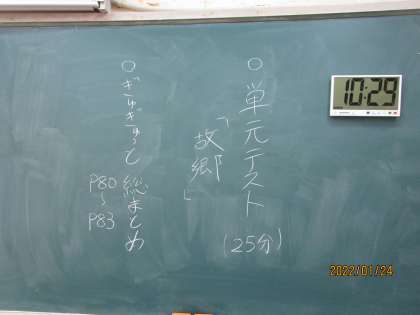 ○単元テスト
「故郷」
(25分)
○ぎゅぎゅっと総まとめ
P80
～
P83
10:29
2022/01/24